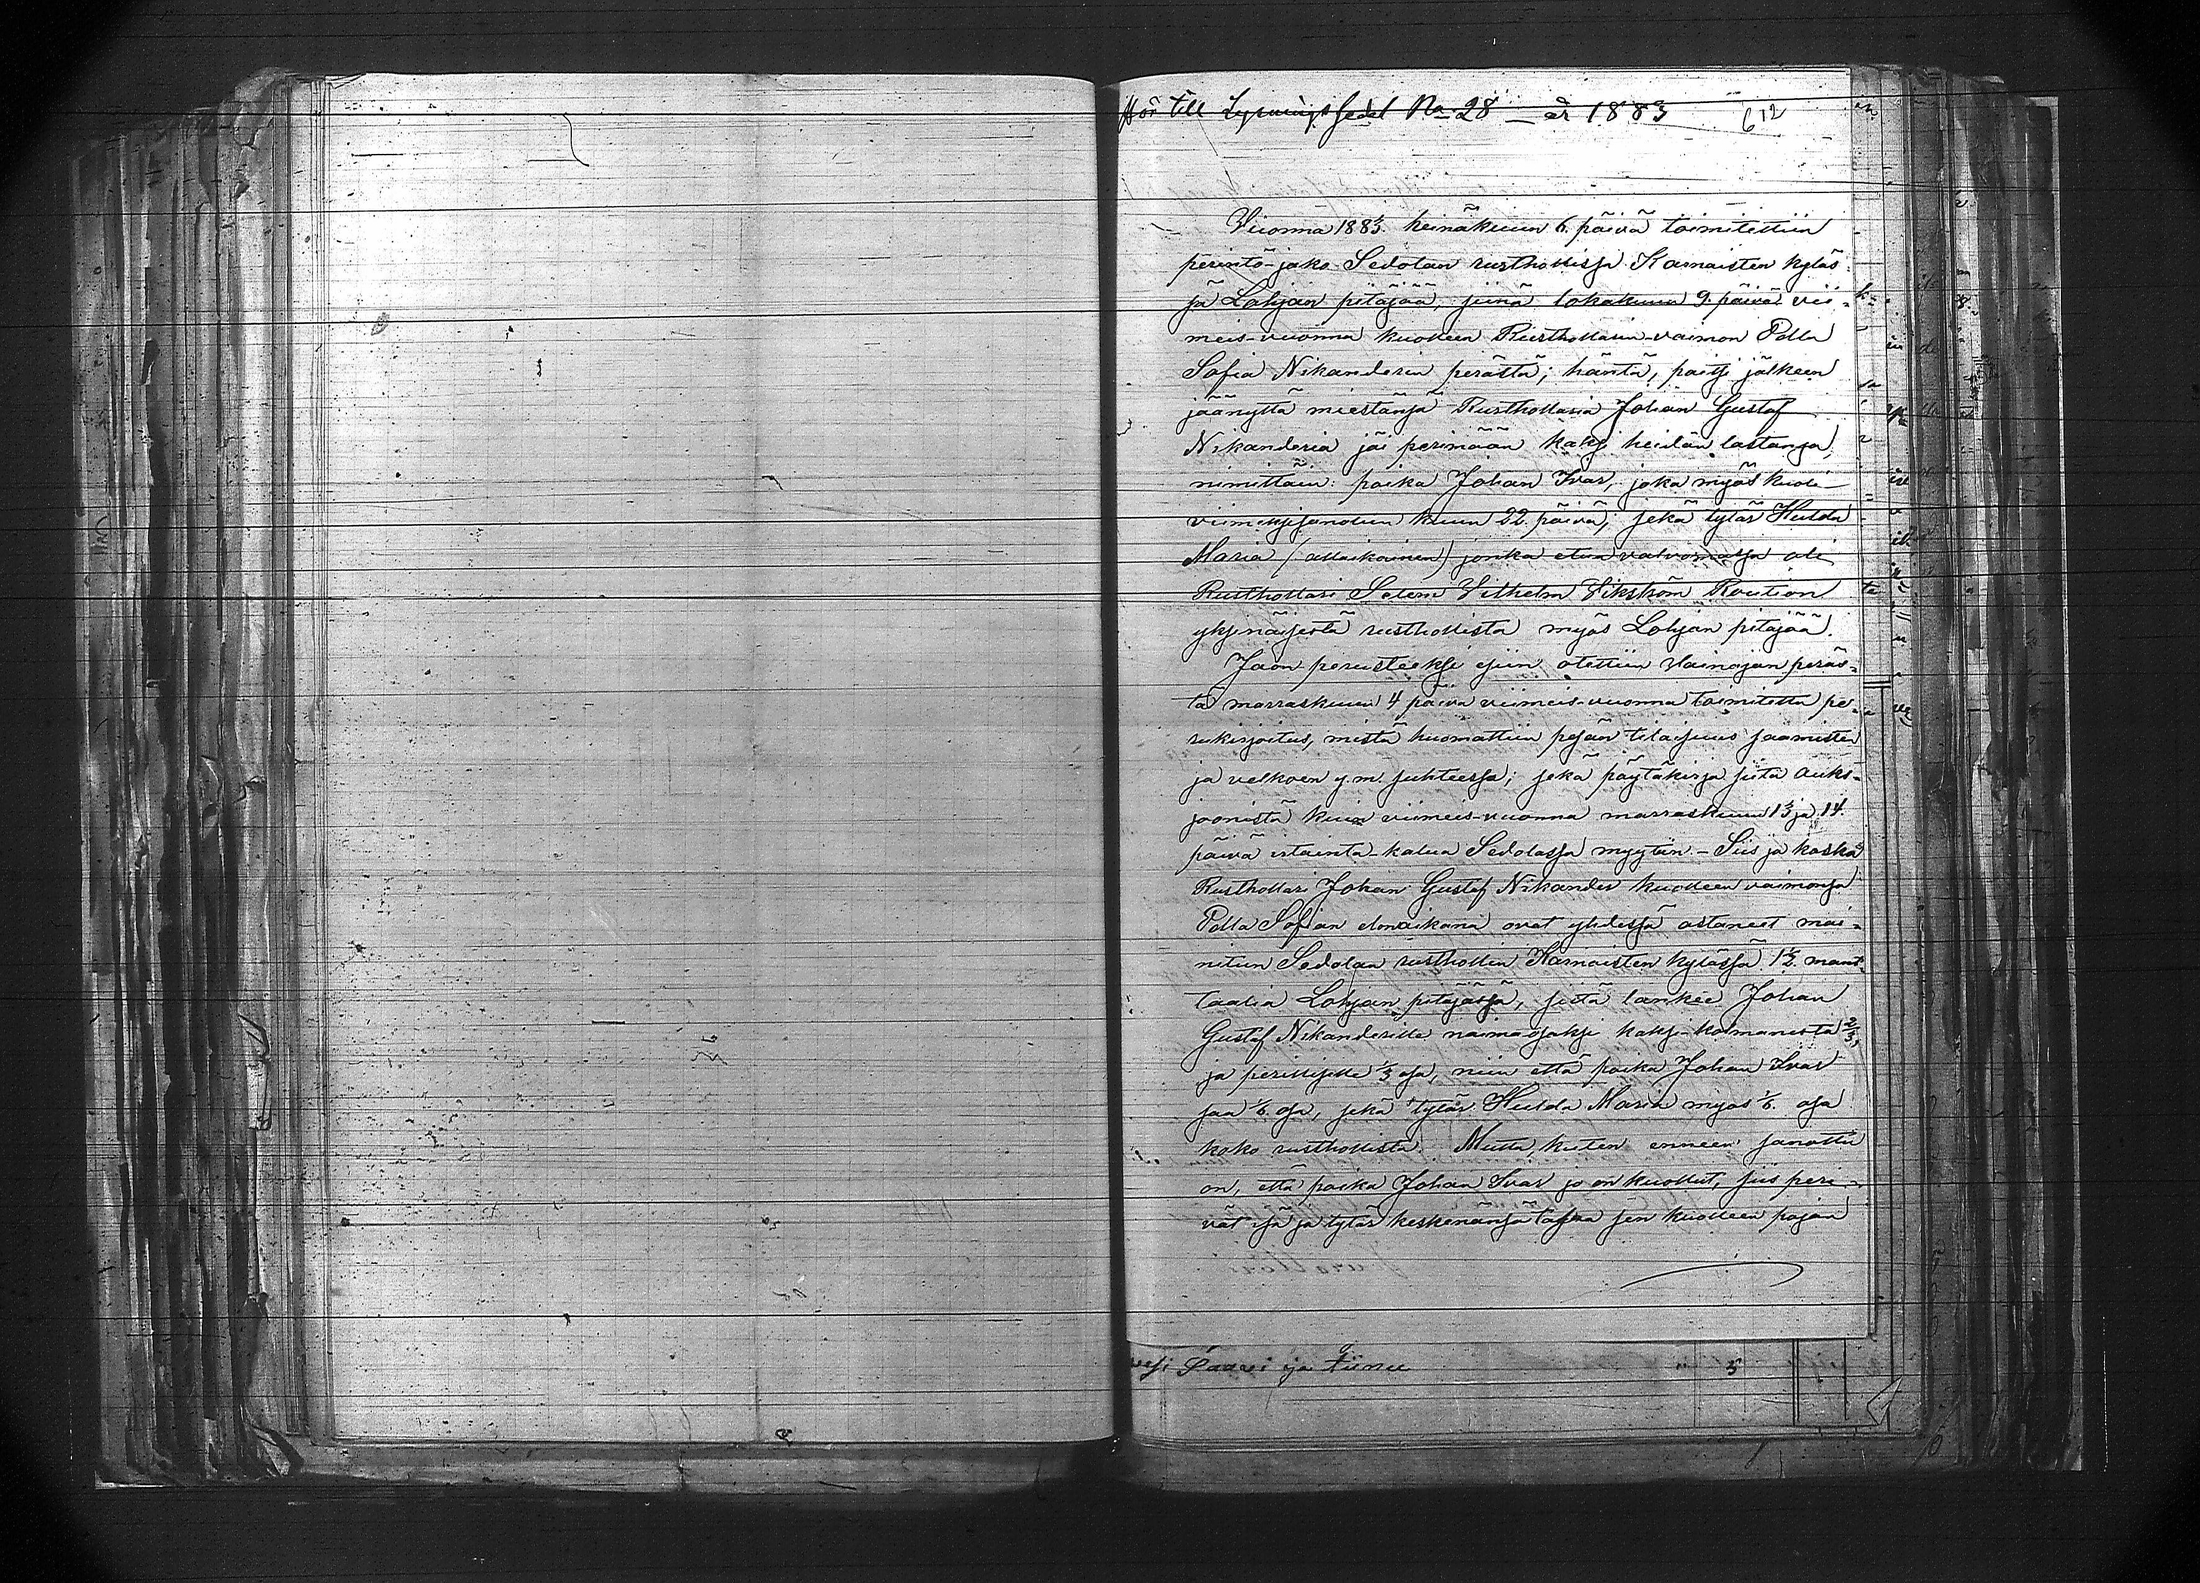 Hör till Lysningssedel No 28 — år 1883
612
Vuonna 1883 heinäkuun 6. päivä toimitettiin
perintö-jako Sedolan rusthollissa Karnaisten kyläs-
sä Lohjan pitäjää, siinä lokakuun 9. päivä vii-
meis-vuonna kuolleen Rusthollarin-vaimon Edla
Sofia Nikanderin perästä; häntä, paitsi jälkeen
jäänyttä miestänsä Rusthollaria Johan Gustaf
Nikanderia jäi perimään kaksi heidän lastansa,
nimittäin: poika Johan Ivar, joka myös kuoli
viimeksisanotun kuun 22. päivä, sekä tytär Hulda
Maria (alaikäinen) jonka etua valvomassa oli
Rusthollari Selim Vilhelm Vikström Roution
yksinäisestä rusthollista myös Lohjan pitäjää.
Jaon perusteeksi esiin otettiin Vainajan peräs-
tä marraskuun 4 päivä viimeis-vuonna toimitettu pe-
rukirjoitus, mistä huomattiin pesän tilaisuus saamisten
ja velkoen y.m. suhteessa; sekä pöytäkirja siitä auks-
joonista kuin viimeis-vuonna marraskuun 13 ja 14.
päivä irtainta-kalua Sedolassa myytiin. - Siis ja koska
Rusthollari Johan Gustaf Nikander kuolleen vaimonsa
Edla Sofian elonaikana ovat yhdessä ostaneet mai-
nitun Sedolan rusthollin Karnaisten kylässä 1/2 mant-
taalia Lohjan pitäjässä, siitä lankee Johan
Gustaf Nikanderille naimaosaksi kaksi-kolmanesta 2/3,
ja perillisille 1/3 osa, niin että poika Johan Ivar
saa 1/6 osa, sekä tytär Hulda Maria myös 1/6 osa
koko rusthollista. Mutta, kuten enneen sanottu
on, että poika Johan Ivar jo on kuollut, siis peri-
vät isä ja tytär keskenänsä tasan sen kuolleen pojan
Saavi ja tiinu
5